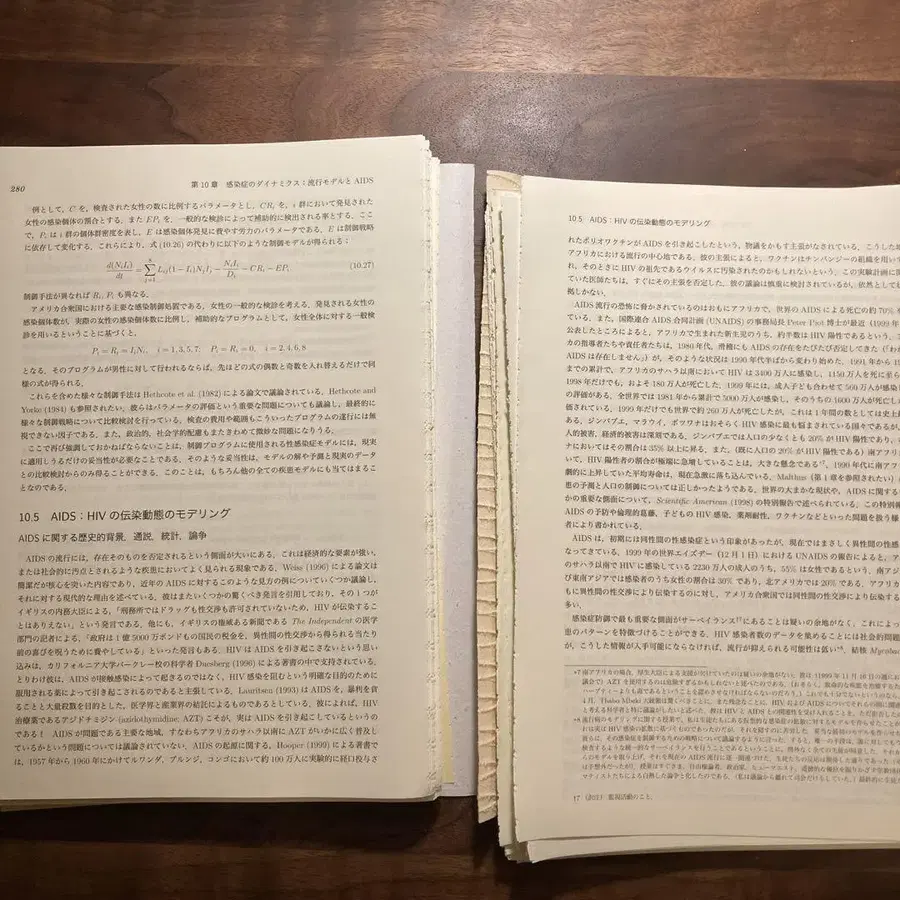 280
第 10 章　感染症のダイナミクス：流行モデルと AIDS
例として，C を，検査された女性の数に比例するパラメータとし，CRᵢ を，i 群において発見された
女性の感染個体の割合とする．また EPᵢ を，一般的な検診によって補助的に検出される率とする．ここ
で，Pᵢ は i 群の個体群密度を表し，E は感染個体発見に費やす労力のパラメータである．E は制御戦略
に依存して変化する．これらにより，式 (10.26) の代わりに以下のような制御モデルが得られる：
d(NᵢIᵢ)/dt = Σ⁸ⱼ₌₁ Lᵢⱼ(1 − Iᵢ)NᵢIⱼ − NᵢIᵢ/Dᵢ − CRᵢ − EPᵢ　(10.27)
制御手法が異なれば Rᵢ, Pᵢ も異なる．
アメリカ合衆国における主要な感染制御処置である，女性の一般的な検診を考える．発見される女性の
感染個体数が，実際の女性の感染個体数に比例し，補助的なプログラムとして，女性全体に対する一般検
診を用いるということに基づくと，
Pᵢ = Rᵢ = IᵢNᵢ,　i = 1, 3, 5, 7;　Pᵢ = Rᵢ = 0,　i = 2, 4, 6, 8
となる．そのプログラムが男性に対して行われるならば，先ほどの式の偶数と奇数を入れ替えるだけで同
様の式が得られる．
これらを含めた様々な制御手法は Hethcote et al. (1982) による論文で議論されている．Hethcote and
Yorke (1984) も参照されたい．彼らはパラメータの評価という重要な問題についても議論し，最終的に
様々な制御戦略について比較検討を行っている．検査の費用や範囲もこういったプログラムの遂行には無
視できない因子である．また，政治的，社会学的配慮もまたきわめて微妙な問題になりうる．
ここで再び強調しておかねばならないことは，制御プログラムに使用される性感染症モデルには，現実
に適用しうるだけの妥当性が必要なことである．そのような妥当性は，モデルの解や予測と現実のデータ
との比較検討からのみ得ることができる．このことは，もちろん他の全ての疾患モデルにも当てはまるこ
となのである．
10.5　AIDS：HIV の伝染動態のモデリング
AIDS に関する歴史的背景，通説，統計，論争
AIDS の流行には，存在そのものを否定されるという側面が大いにある．これは経済的な要素が強い，
または社会的に汚点とされるような疾患においてよく見られる現象である．Weiss (1996) による論文は
簡潔だが核心を突いた内容であり，近年の AIDS に対するこのような見方の例についていくつか議論し，
それに対する現代的な理由を述べている．彼はまたいくつかの驚くべき発言を引用しており，その 1 つが
イギリスの内務大臣による，「刑務所ではドラッグも性交渉も許可されていないため，HIV が伝染するこ
とはありえない」という発言である．他にも，イギリスの権威ある新聞である The Independent の医学
部門の記者による，「政府は 1 億 5000 万ポンドもの国民の税金を，異性間の性交渉から得られる当たり
前の喜びを呪うために費やしている」といった発言もある．HIV は AIDS を引き起こさないという思い
込みは，カリフォルニア大学バークレー校の科学者 Duesberg (1996) による著書の中で支持されている．
とりわけ彼は，AIDS が接触感染によって起きるのではなく，HIV 感染を阻むという明確な目的のために
服用される薬によって引き起こされるのであると主張している．Lauritsen (1993) は AIDS を，暴利を貪
ることと大量殺戮を目的とした，医学界と産業界の結託によるものであるとしている．彼によれば，HIV
治療薬であるアジドチミジン (azidothymidine, AZT) こそが，実は AIDS を引き起こしているというの
である！ AIDS が問題である主要な地域，すなわちアフリカのサハラ以南に AZT がいかに広く普及し
ているかという問題については議論されていない．AIDS の起源に関する，Hooper (1999) による著書で
は，1957 年から 1960 年にかけてルワンダ，ブルンジ，コンゴにおいて約 100 万人に実験的に経口投与さ
10.5　AIDS：HIV の伝染動態のモデリング
れたポリオワクチンが AIDS を引き起こしたという，物議をかもす主張がなされている．こうした地
アフリカにおける流行の中心地である．彼の主張によると，ワクチンはチンパンジーの組織を用いて
れ，そのときに HIV の祖先であるウイルスに汚染されたのかもしれないという．この実験計画に関
ていた医師たちは，すぐにその主張を否定した．彼の議論は慎重に検討されているが，依然として
拠しかない．
AIDS 流行の恐怖に脅かされているのはおもにアフリカで，世界の AIDS による死亡の約 70%
ている．また，国際連合 AIDS 合同計画 (UNAIDS) の事務局長 Peter Piot 博士が最近 (1999 年
公表したところによると，アフリカで生まれた新生児のうち，約半数は HIV 陽性であるという．ア
カの指導者たちや責任者たちは，1980 年代，滑稽にも AIDS の存在をたびたび否定してきた (「わが
AIDS は存在しません」) が，そのような状況は 1990 年代半ばから変わり始めた．1981 年から
までの累計で，アフリカのサハラ以南において HIV は 3400 万人に感染し，1150 万人を死に至ら
1998 年だけでも，およそ 180 万人が死亡した．1999 年には，成人子ども合わせて 500 万人が感染
の評価がある．全世界では 1981 年から累計で 5000 万人が感染し，そのうちの 1600 万人が死亡し
価されている．1999 年だけでも世界で約 260 万人が死亡したが，これは 1 年間の数としては史上
ある．ジンバブエ，マラウイ，ボツワナはおそらく HIV 感染に最も悩まされている国々であるが，
人的被害，経済的被害は深刻である．ジンバブエでは人口の少なくとも 20% が HIV 陽性であり，
ナにおいてはその割合は 35% 以上に昇る．また，(既に人口の 20% が HIV 陽性である) 南アフリ
いて，HIV 陽性者の割合が極端に急増していることは，大きな懸念である．1990 年代に南アフ
劇的に上昇していた平均寿命は，現在急激に落ち込んでいる．Malthus (第 1 章を参照されたい) の
患の予測と人口の制御については正しかったようである．世界の大まかな現状や，AIDS に関する
かの重要な側面について，Scientific American (1998) の特別報告で述べられている．この特別報
AIDS の予防や倫理的葛藤，子どもの HIV 感染，薬剤耐性，ワクチンなどといった問題を扱う様々
者により書かれている．
AIDS は，初期には同性間の性感染症という印象があったが，現在ではますます異性間の性感
なってきている．1999 年の世界エイズデー (12 月 1 日) における UNAIDS の報告によると，ア
のサハラ以南で HIV に感染している 2230 万人の成人のうち，55% は女性であるという．南アジ
び東南アジアでは感染者のうち女性の割合は 30% であり，北アメリカでは 20% である．アフリカ
もに異性間の性交渉により伝染するのに対し，アメリカ合衆国では同性間の性交渉により伝染する
多い．
感染症防御で最も重要な側面がサーベイランス にあることは疑いの余地がなく，これによっ
患のパターンを特徴づけることができる．HIV 感染者数のデータを集めることには社会的問題
が，こうした情報が入手可能にならなければ，流行が抑えられる可能性は低い．結核
17　(訳注) 監視活動のこと．